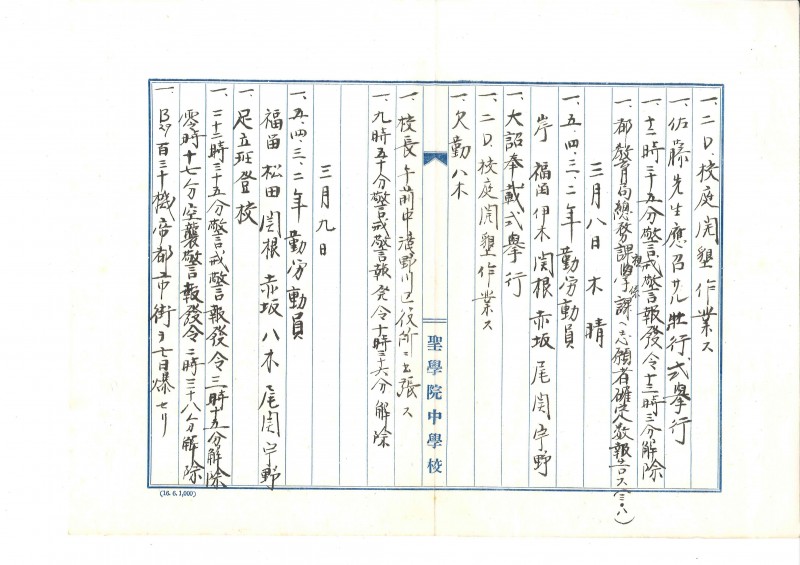 一、二D、校庭開墾作業ス
一、佐藤先生應召サル壯行式擧行
一、十二時三十五分警戒警報發令十三時三分解除
一、都教育局總務課視學係課ヘ志願者確定人数報告ス(三・八)
三月八日木晴
一、五、四、三、二年勤労動員
岸 福留 伊木 関根 赤坂 尾関 宇野
一、大詔奉戴式擧行
一、二D、校庭開墾作業ス
一、欠勤八木
聖學院中學校
一、校長午前中滝野川区役所ニ出張ス
一、九時五十分警戒警報発令十時三十六分解除
三月九日
一、五、四、三、二年勤労動員
福留 松田 関根 赤坂 八木 尾関 宇野
一、足立班登校
一、二十二時三十五分警戒警報發令三時十五分解除
零時十七分空襲警報發令二時三十八分解除
一、B29百三十機帝都市街ヲ亡目爆セリ
(16. 6. 1,000)